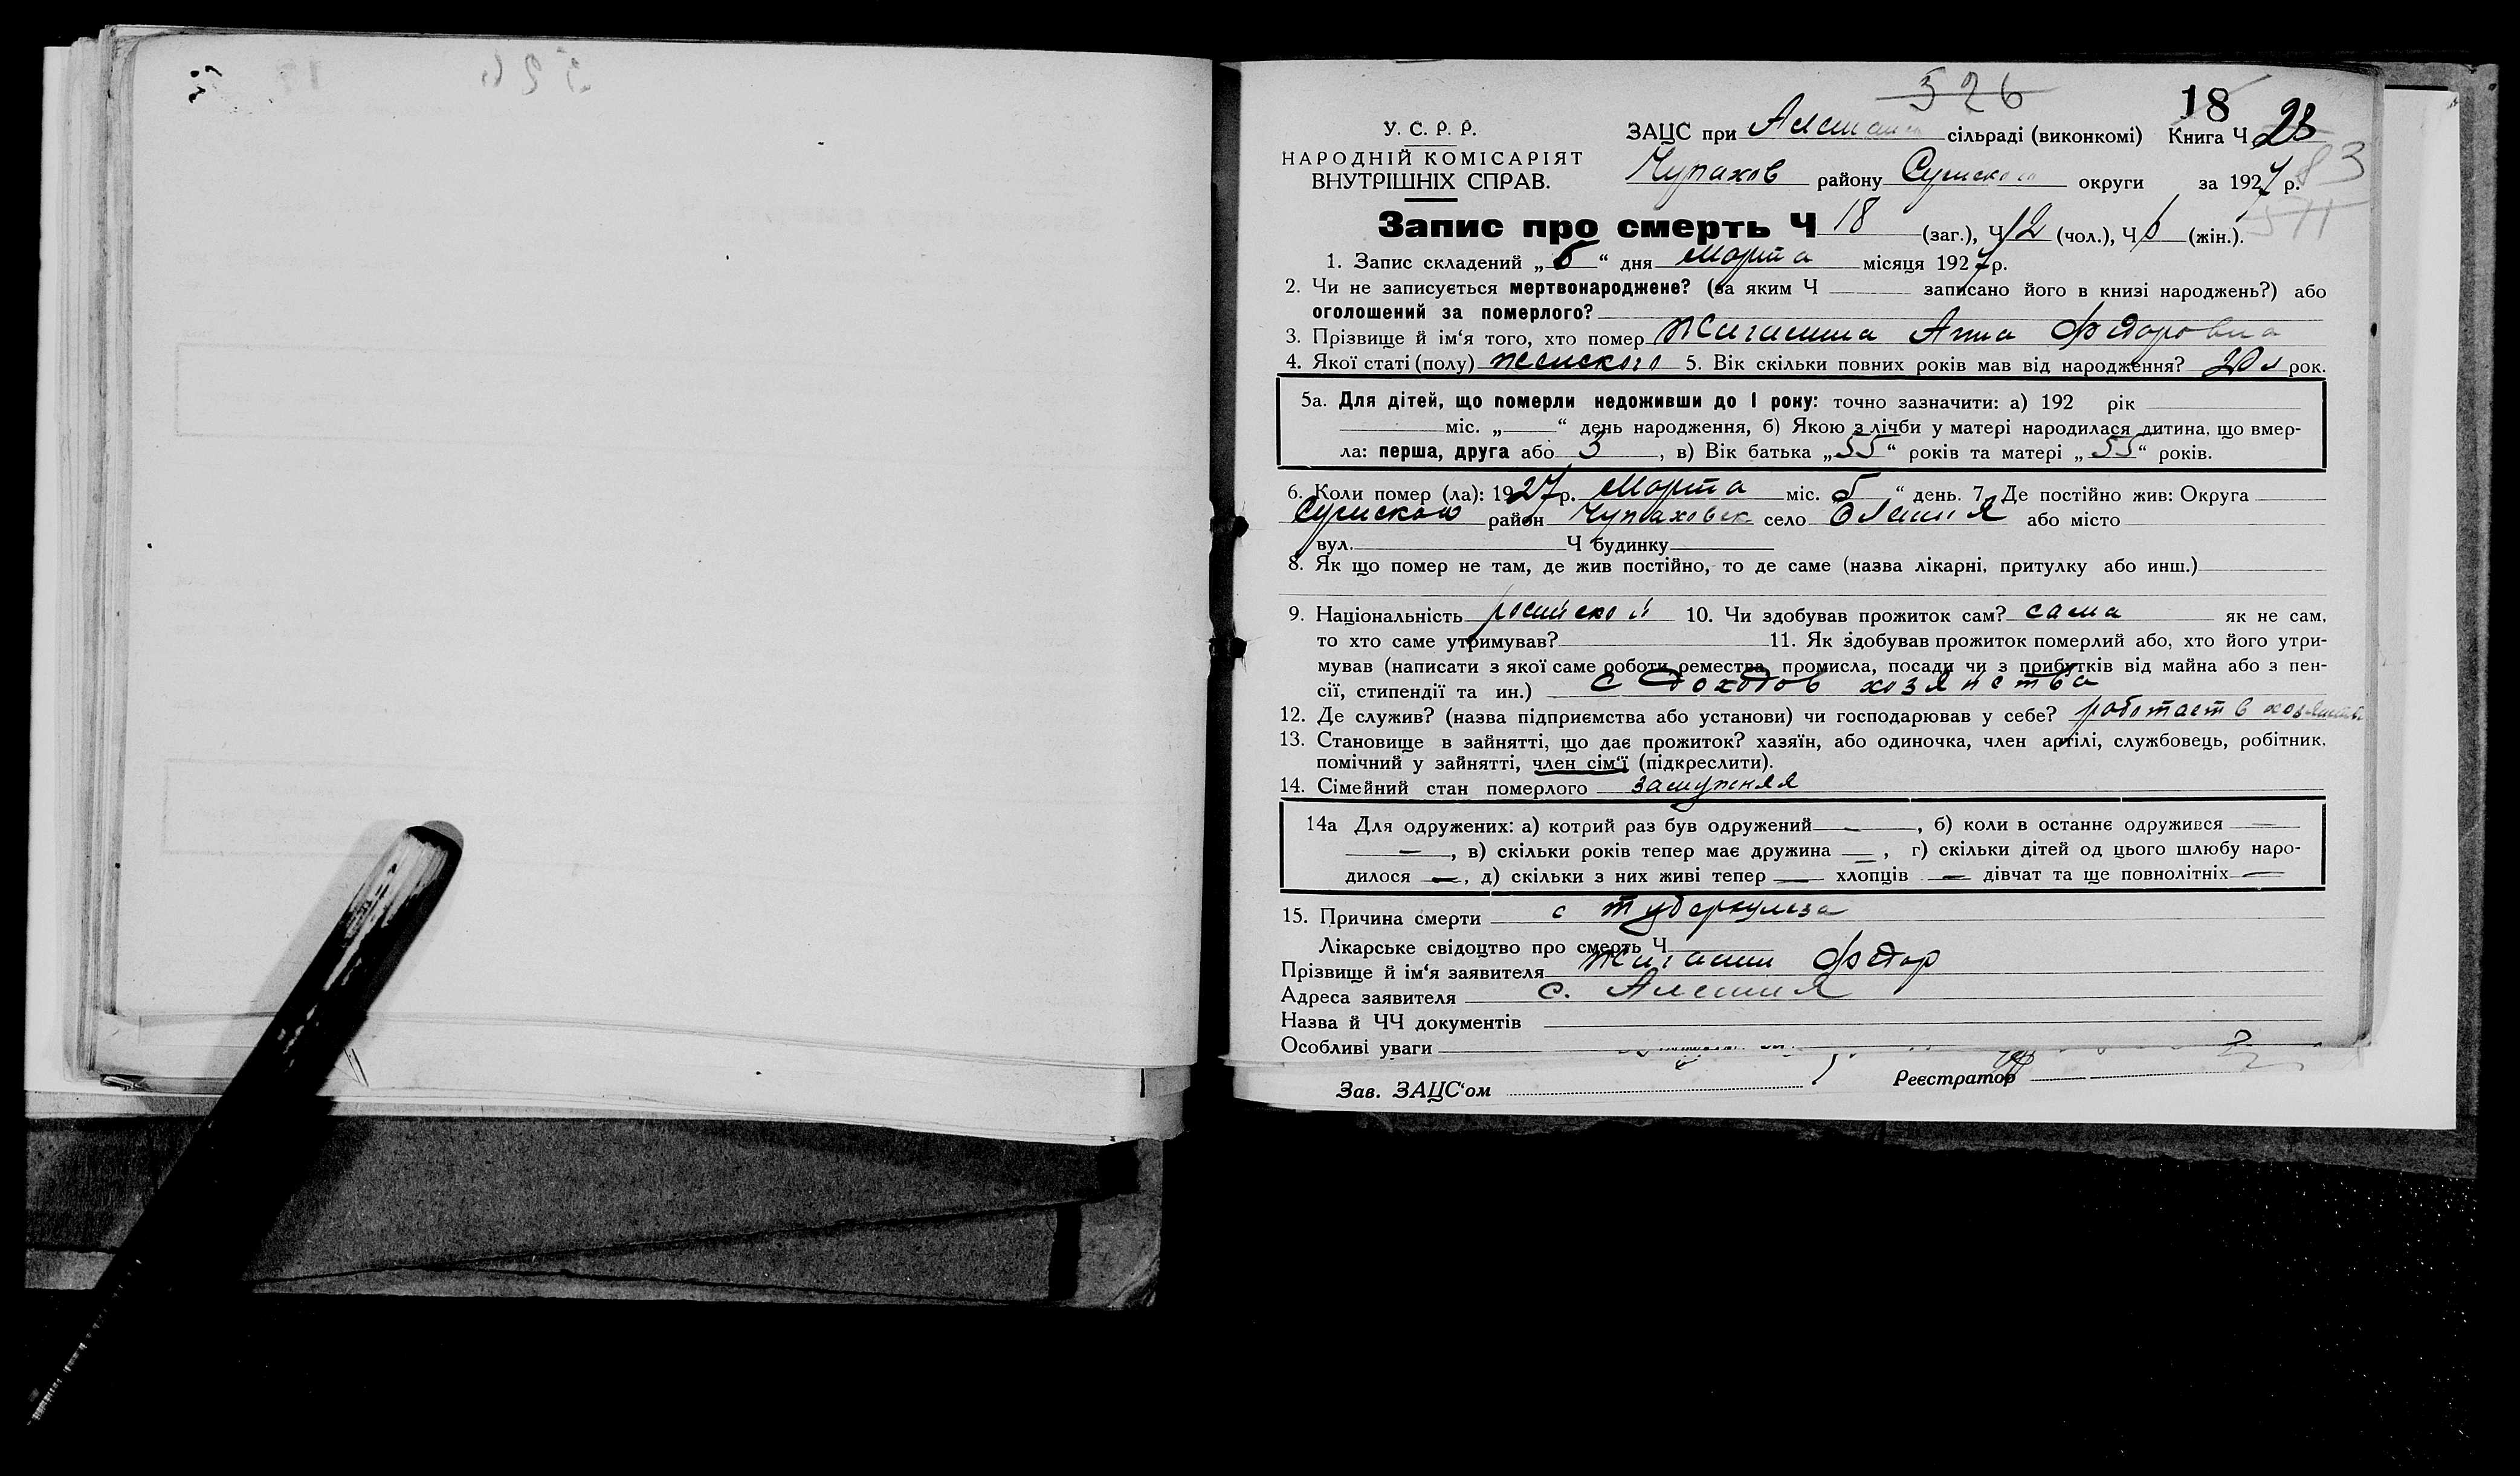 526
18
У. С. Р. Р.
ЗАЦС при сільраді (виконкомі) Книга Ч 28
НАРОДНІЙ КОМІСАРІЯТ
ВНУТРІШНІХ СПРАВ.
Чупахов району Сумского округи за 1927 р.
83
571
Запис про смерть Ч 18 (заг.), Ч 12 (чол.), Ч 6 (жін.).
1. Запис складений „ “ дня Марта місяця 1927 р.
2. Чи не записується мертвонароджене? (за яким Ч записано його в книзі народжень?) або
оголошений за померлого?
3. Прізвище й ім‘я того, хто помер Жигалина Анна Федоровна
4. Якої статі (полу) женского 5. Вік скільки повних років мав від народження? 20 л рок.
5а. Для дітей, що померли недоживши до 1 року: точно зазначити: а) 192 рік
міс. „ “ день народження, б) Якою з лічби у матері народилася дитина, що вмер-
ла: перша, друга або 3, в) Вік батька „55“ років та матері „55“ років.
6. Коли помер (ла): 1927 р. Марта міс. „ “ день. 7. Де постійно жив: Округа
Сумского район Чупаховск село Олешня або місто
вул. Ч будинку
8. Як що помер не там, де жив постійно, то де саме (назва лікарні, притулку або инш.)
9. Національність 10. Чи здобував прожиток сам? сама як не сам,
то хто саме утримував? 11. Як здобував прожиток померлий або, хто його утри-
мував (написати з якої саме роботи ремества, промисла, посади чи з прибутків від майна або з пен-
сії, стипендії та ин.) с доходов хозяйства
12. Де служив? (назва підприємства або установи) чи господарював у себе? работает в
13. Становище в зайнятті, що дає прожиток? хазяїн, або одиночка, член артілі, службовець, робітник,
помічний у зайнятті, член сім‘ї (підкреслити).
14. Сімейний стан померлого замужняя
14а Для одружених: а) котрий раз був одружений —, б) коли в останнє одружився —
—, в) скільки років тепер має дружина —, г) скільки дітей од цього шлюбу наро-
дилося —, д) скільки з них живі тепер — хлопців — дівчат та ще повнолітніх —
15. Причина смерти с туберкулеза
Лікарське свідоцтво про смерть Ч
Прізвище й ім‘я заявителя Жигалин Федор
Адреса заявителя с. Алешня
Назва й ЧЧ документів
Особливі уваги
Зав. ЗАЦС‘ом Реєстратор